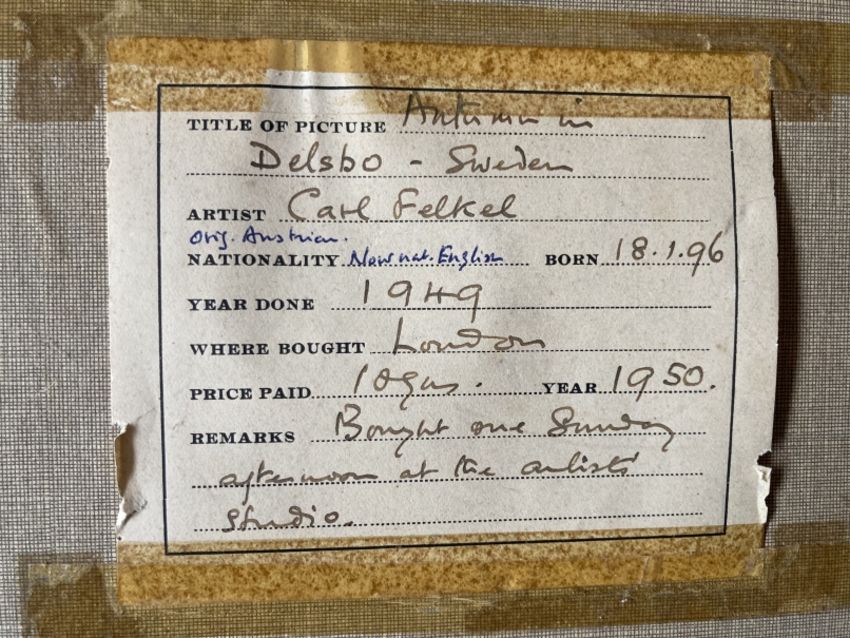 TITLE OF PICTURE Autumn in
Delsbo - Sweden
ARTIST Carl Felkel
orig. Austrian.
NATIONALITY Now nat. English BORN 18.1.96
YEAR DONE 1949
WHERE BOUGHT London
PRICE PAID 10gns. YEAR 1950.
REMARKS Bought one Sunday
afternoon at the artists'
studio.